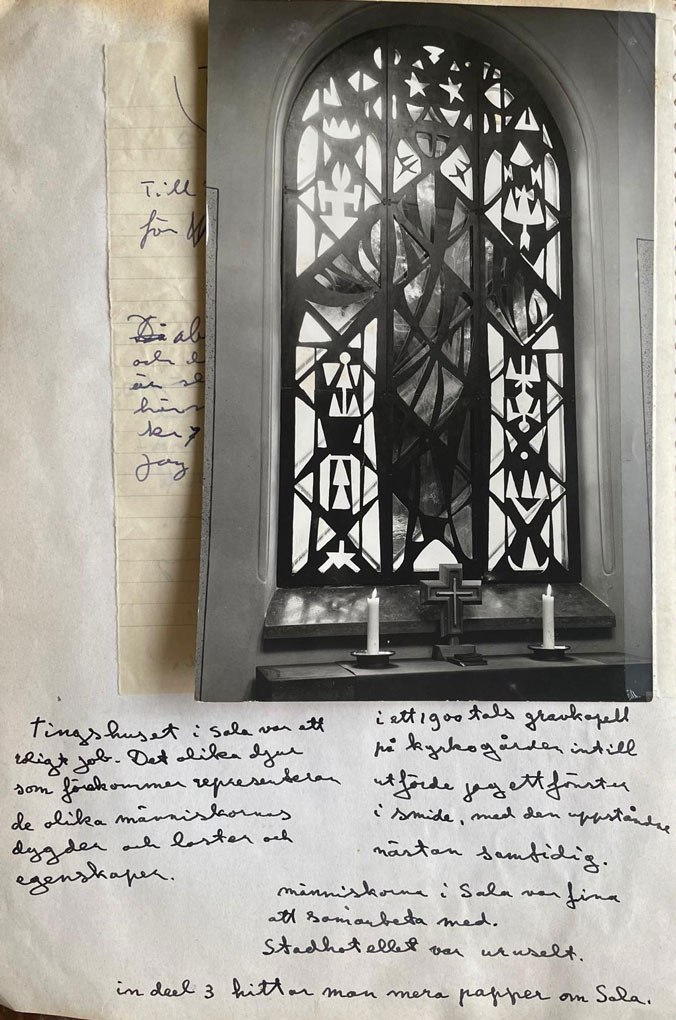 Till
för
alb
och
är
hirr
ker
jag
Tingshuset i Sala var ett
roligt job. Det olika djur
som förekommer representerar
de olika människornas
dygder och laster och
egenskaper.
i ett 1900 tals gravkapell
på kyrkogården intill
utförde jag ett fönster
i smide, med den uppståndne
nästan samtidig.
människorna i Sala var fina
att samarbeta med.
Stadhotellet var uruselt.
in deel 3 hittar man mera papper om Sala.